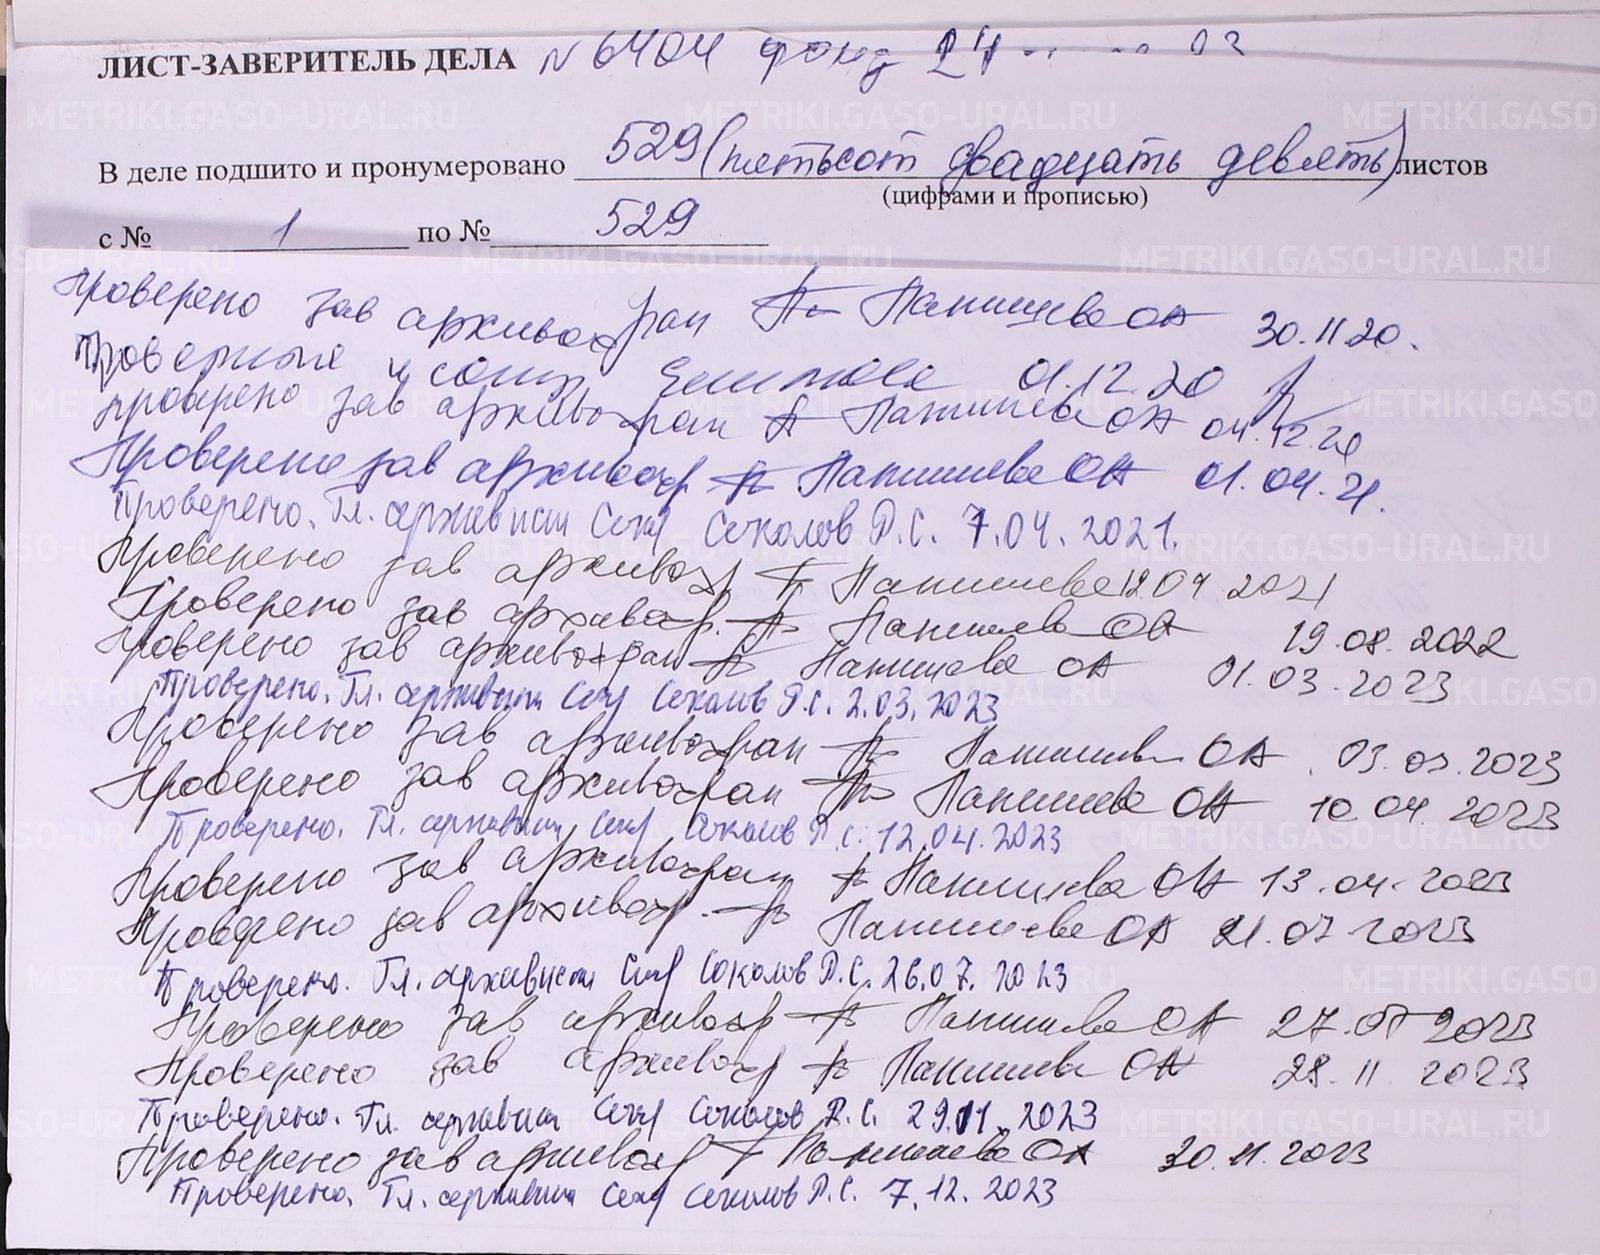 ЛИСТ-ЗАВЕРИТЕЛЬ ДЕЛА N 6404 фонд
В деле подшито и пронумеровано 529 (пятьсот двадцать девять) листов
(цифрами и прописью)
с № 1 по № 529
Проверено зав архивохран ОА 30.11.20.
01.12.20
проверено зав архивохран ОА 04.12.20
Проверено зав архивохр ОА 01.04.21.
Проверено. Гл. архивист Соколов Д.С. 7.04.2021.
Проверено зав архивохр 12.04.2021
Проверено зав архивохр. ОА 19.08.2022
Проверено зав архивохран ОА 01.03.2023
Проверено. Гл. архивист Соколов Д.С. 2.03.2023
Проверено зав архивохран ОА 03.03.2023
Проверено зав архивохран ОА 10.04.2023
Проверено. Гл. архивист Соколов Д.С. 12.04.2023
Проверено зав архивохран ОА 13.04.2023
Проверено зав архивохр. ОА 21.07.2023
Проверено. Гл. архивист Соколов Д.С. 26.07.2023
Проверено зав архивохр ОА 27.07.2023
Проверено зав архивохр ОА 28.11.2023
Проверено. Гл. архивист Соколов Д.С. 29.11.2023
Проверено зав архивохр ОА 30.11.2023
Проверено. Гл. архивист Соколов Д.С. 7.12.2023
METRIKI.GASO-URAL.RU